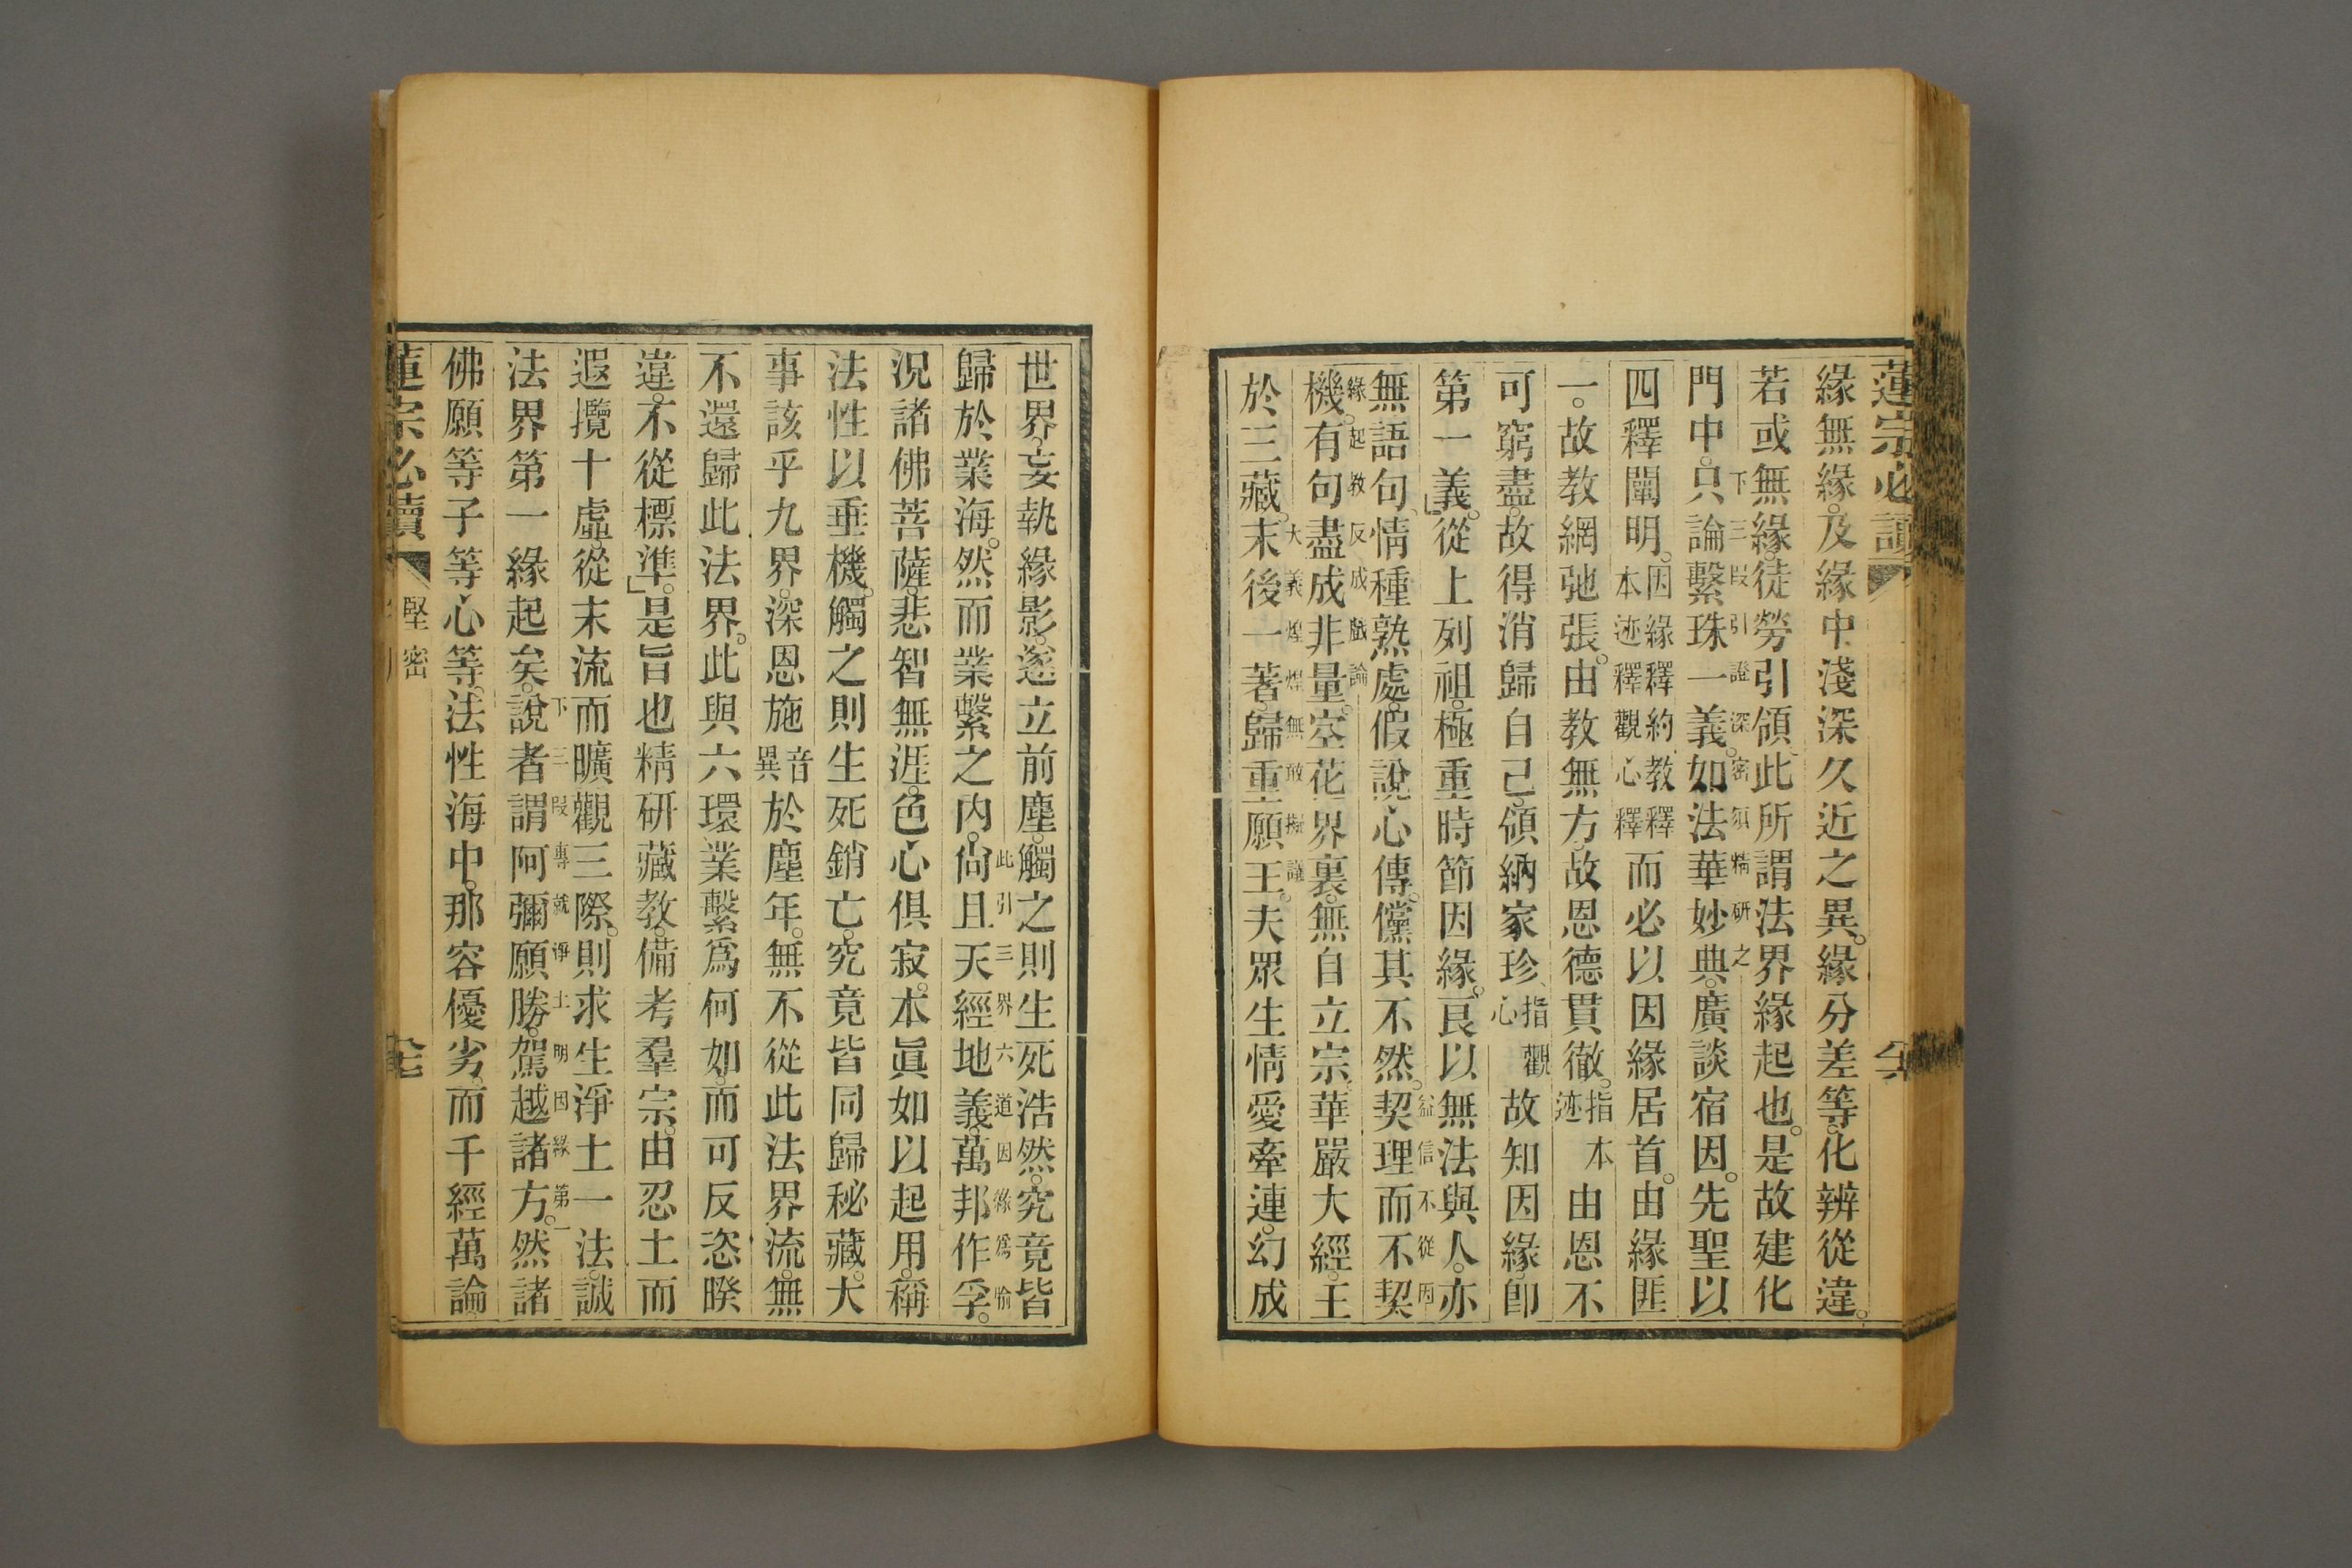 蓮宗必讀
緣無緣。及緣中淺深久近之異。緣分差等。化辨從違。
若或無緣。徒勞引領。此所謂法界緣起也。是故建化
下三段引證深密須精研之
門中。只論繫珠一義。如法華妙典。廣談宿因。先聖以
四釋闡明。因緣釋約教釋本迹釋觀心釋而必以因緣居首。由緣匪
一。故教網弛張。由教無方。故恩德貫徹。指本迹由恩不
可窮盡。故得消歸自己。領納家珍、指觀心故知因緣。卽
第一義。」從上列祖。極重時節因緣。良以無法與人。亦
無語句、情種熟處。假說心傳。儻其不然。契理而不契
益信不從因緣。起教反成戲論
機。有句盡成非量。空花界裏。無自立宗。華嚴大經。王
於三藏。末後一著。歸重願王。夫眾生情愛牽連。幻成
大義煌煌無敢擬議
世界。妄執緣影。遂立前塵。觸之則生死浩然。究竟皆
歸於業海。然而業繫之內。尙且天經地義。萬邦作孚。
此引三界六道因緣爲喻
況諸佛菩薩。悲智無涯。色心俱寂。本眞如以起用。稱
法性以垂機。觸之則生死銷亡。究竟皆同歸秘藏。大
事該乎九界。深恩施異音於塵年。無不從此法界流。無
不還歸此法界。此與六環業繫爲何如。而可反恣睽
違。不從標準。」是旨也精研藏教。備考羣宗。由忍土而
遐攬十虛。從末流而曠觀三際。則求生淨土一法。誠
法界第一緣起矣。說者謂阿彌願勝。駕越諸方。然諸
下三段專就淨土明因緣第一
佛願等子等心等。法性海中。那容優劣。而千經萬論。
蓮宗必讀
堅密